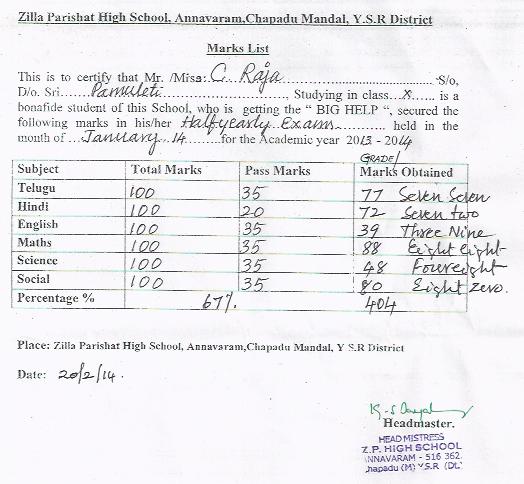 Zilla Parishat High School, Annavaram,Chapadu Mandal, Y.S.R District
Marks List
This is to certify that Mr. /Miss: C. Raja S/o,
D/o. Sri..... Pamuleti ......, Studying in class...X...... is a
bonafide student of this School, who is getting the “ BIG HELP “, secured the
following marks in his/her Halfyearly Exams ............ held in the
month of ...January 14 .........for the Academic year 2013 - 2014
GRADE/
Subject Total Marks Pass Marks Marks Obtained
Telugu 100 35 77 Seven Seven
Hindi 100 20 72 Seven two
English 100 35 39 Three Nine
Maths 100 35 88 Eight eight
Science 100 35 48 Four eight
Social 100 35 80 Eight zero.
Percentage % 67% 404
Place: Zilla Parishat High School, Annavaram,Chapadu Mandal, Y S.R District
Date: 20/2/14.
Headmaster.
HEAD MISTRESS
Z.P. HIGH SCHOOL
NNAVARAM - 516 362.
hapadu (M) Y.S.R (DL)